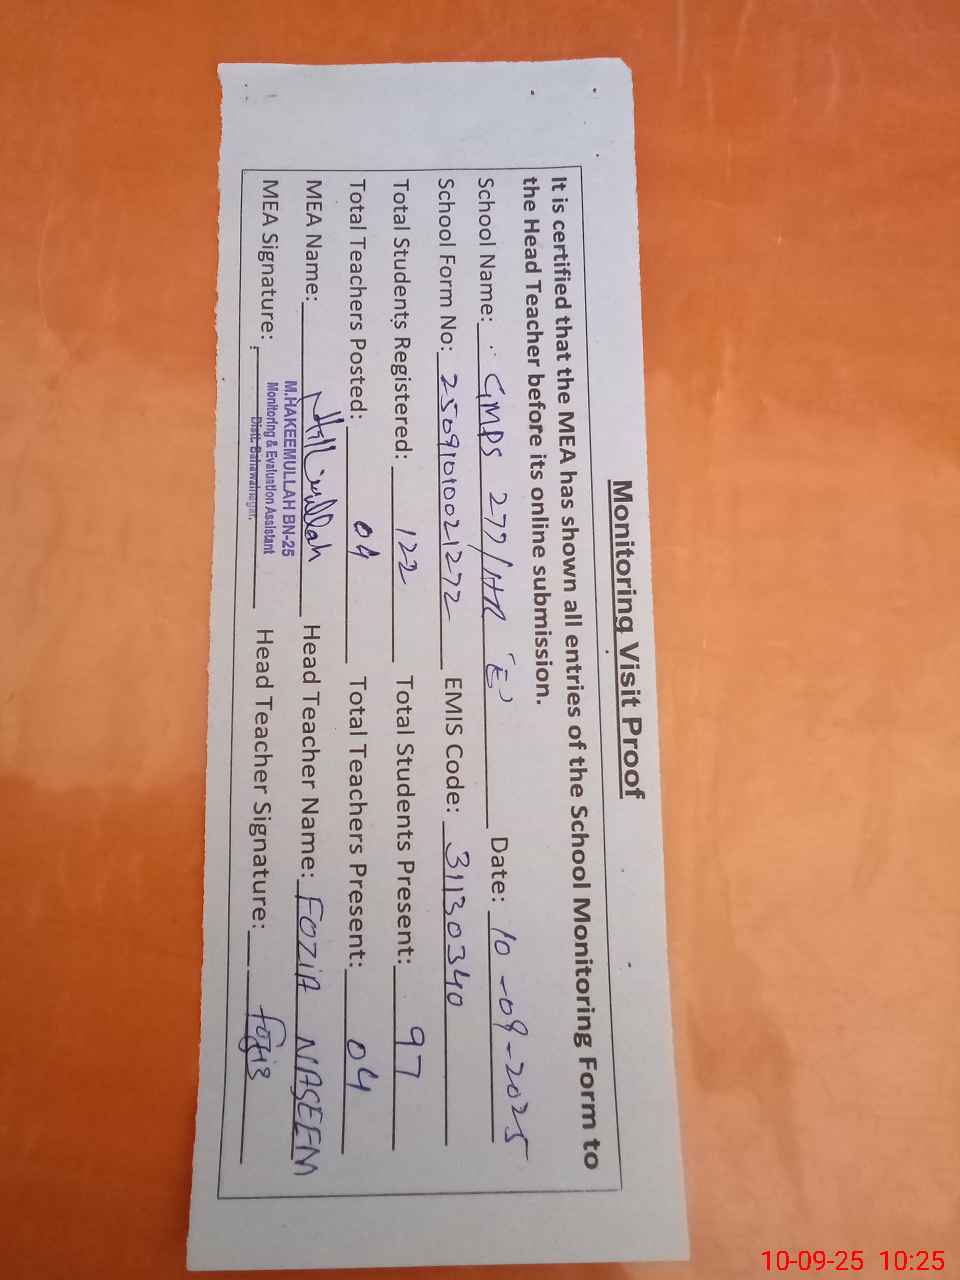 Monitoring Visit Proof
It is certified that the MEA has shown all entries of the School Monitoring Form to
the Head Teacher before its online submission.
School Name: GMPS 277/HR 'E' Date: 10-09-2025
School Form No: 2509101021272 EMIS Code: 31130340
Total Students Registered: 122 Total Students Present: 97
Total Teachers Posted: 04 Total Teachers Present: 04
MEA Name: Head Teacher Name: FOZIA NASEEM
M.HAKEEMULLAH BN-25
Monitoring & Evaluation Assistant
Distt. Bahawalnagar.
MEA Signature: Head Teacher Signature: Fozia
10-09-25 10:25